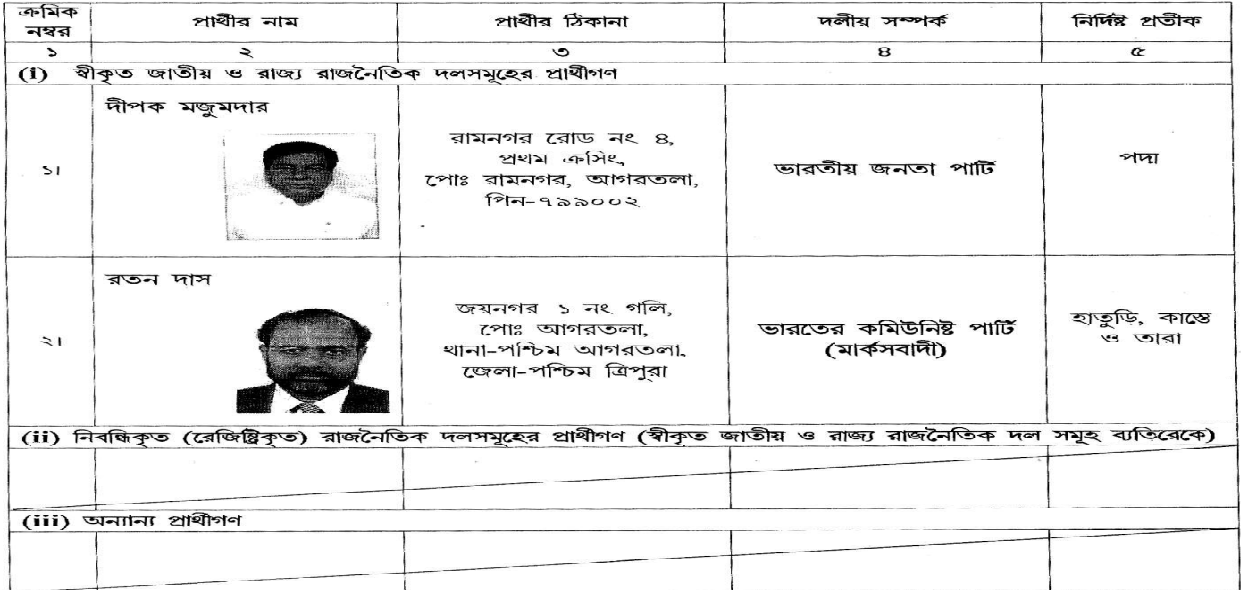 ক্রমিক নম্বর
প্রার্থীর নাম
প্রার্থীর ঠিকানা
দলীয় সম্পর্ক
নির্দিষ্ট প্রতীক
১
২
৩
৪
৫
(i) স্বীকৃত জাতীয় ও রাজ্য রাজনৈতিক দলসমূহের প্রার্থীগণ
১।
দীপক মজুমদার
রামনগর রোড নং ৪,
প্রথম ক্রসিং,
পোঃ রামনগর, আগরতলা,
পিন-৭৯৯০০২
ভারতীয় জনতা পার্টি
পদ্ম
২।
রতন দাস
জয়নগর ১ নং গলি,
পোঃ আগরতলা,
থানা-পশ্চিম আগরতলা,
জেলা-পশ্চিম ত্রিপুরা
ভারতের কমিউনিষ্ট পার্টি
(মার্কসবাদী)
হাতুড়ি, কাস্তে
ও তারা
(ii) নিবন্ধিকৃত (রেজিষ্ট্রিকৃত) রাজনৈতিক দলসমূহের প্রার্থীগণ (স্বীকৃত জাতীয় ও রাজ্য রাজনৈতিক দল সমূহ ব্যতিরেকে)
(iii) অন্যান্য প্রার্থীগণ